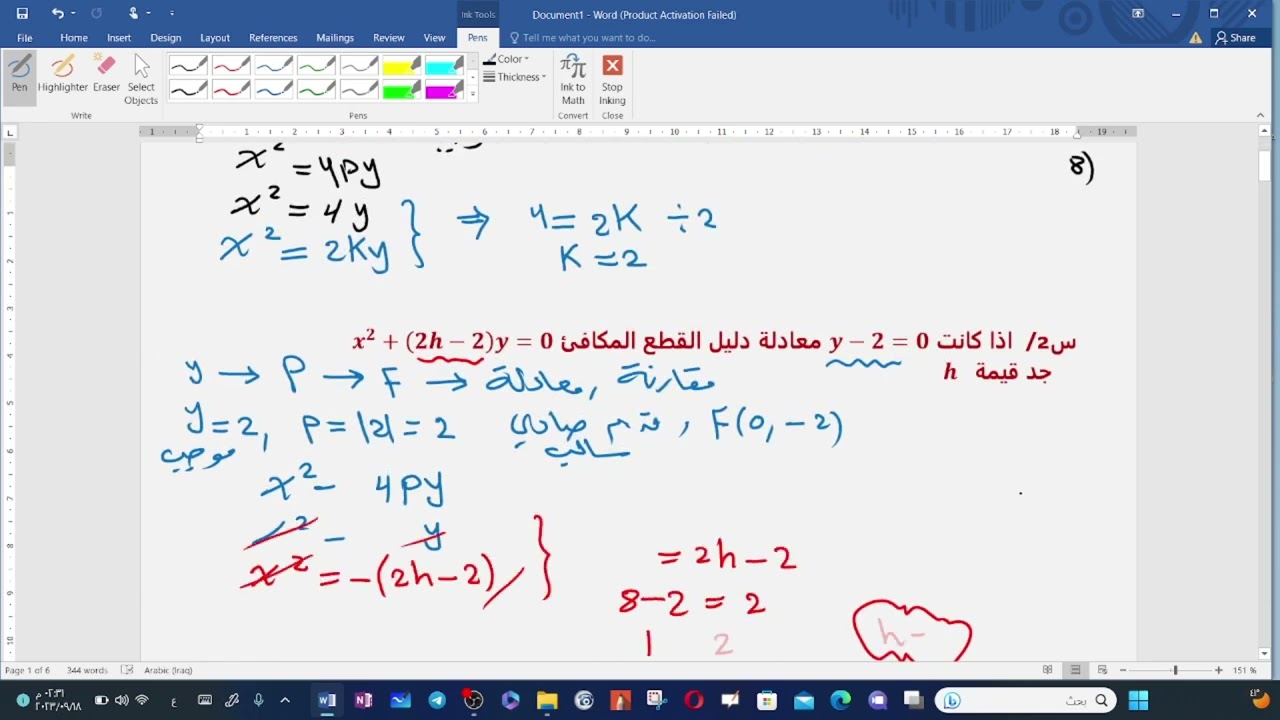 Ink Tools
Document1 - Word (Product Activation Failed)
File Home Insert Design Layout References Mailings Review View Pens Tell me what you want to do... Share
Pen Highlighter Eraser Select Objects
Color
Thickness
Ink to Math
Stop Inking
Write Pens Convert Close
x² = 4py
8)
x² = 4y
x² = 2Ky
⇒ 4 = 2K ÷2
K = 2
س2/ اذا كانت y − 2 = 0 معادلة دليل القطع المكافئ x² + (2h − 2)y = 0
جد قيمة h
y → P → F → معادلة , مقارنة
y = 2, P = |2| = 2 , F(0, −2)
موجب سالب
x² − 4py
x² − y
x² = −(2h−2)
= 2h − 2
8 − 2 = 2
1 2
h −
Page 1 of 6 344 words Arabic (Iraq) 151 %
بحث